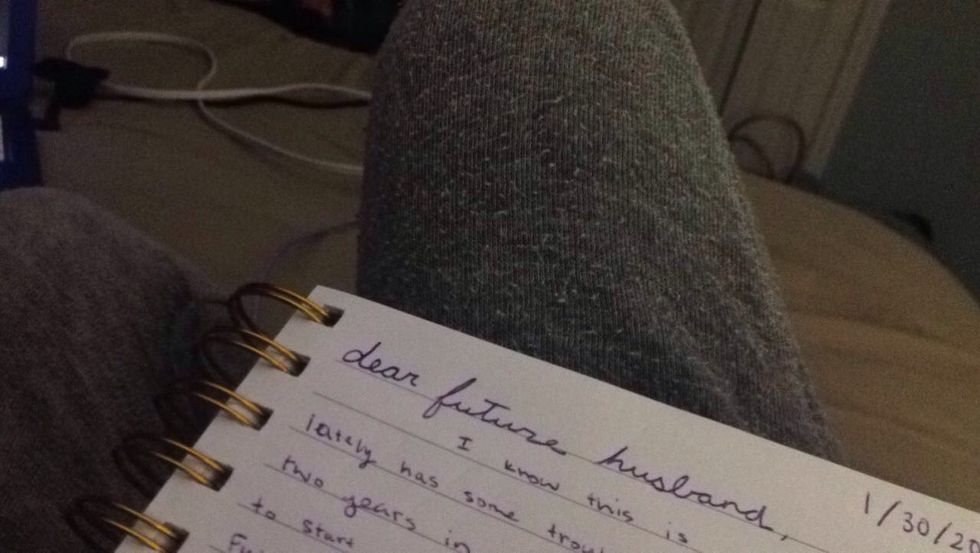 1/30/20
dear future husband,
I know this is
lately has some
two years in
to start